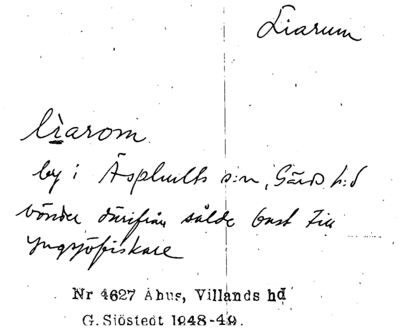 Liarum
lìarom
by i Äsphults s:n, Gärds h:d
bönder därifrån sålde bast till
yngsjöfiskare
Nr 4627 Åhus, Villands hd
G. Sjöstedt 1948-49.